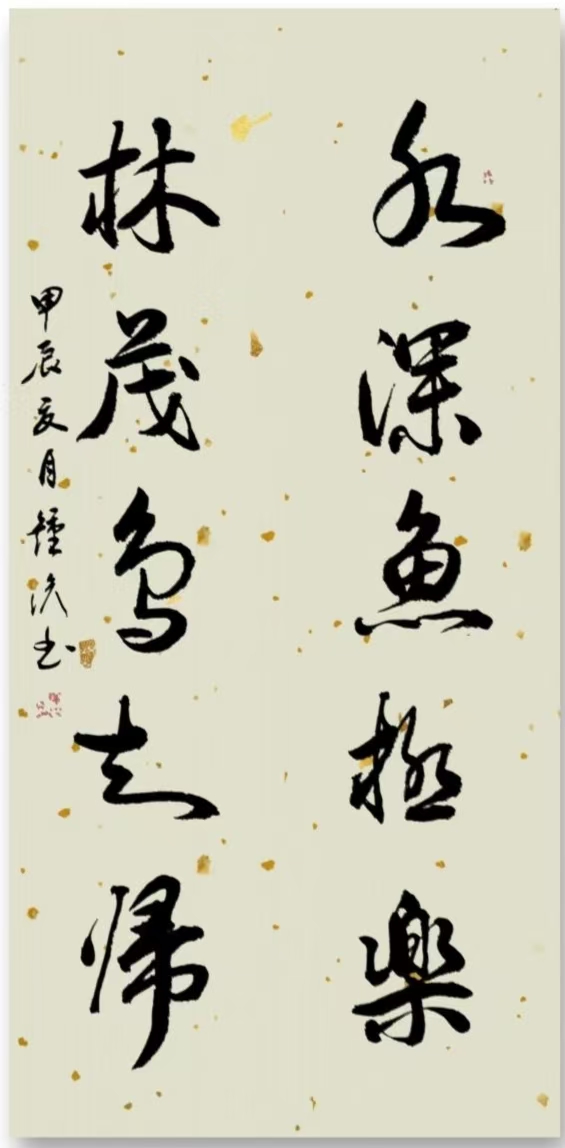 水深魚極樂
林茂鳥知歸
甲辰夏月 书